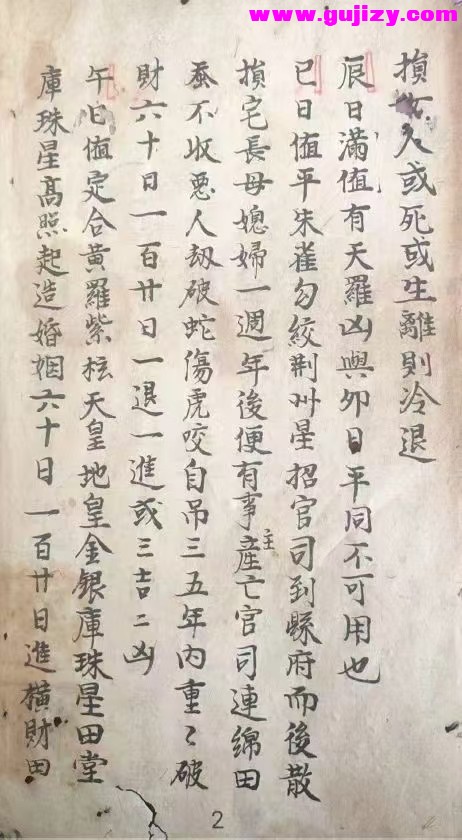 www.gujizy.com
損女人或死或生離則冷退
辰日滿值有天羅凶與夘日平同不可用也
巳日值平朱雀勾絞荆州星招官司到縣府而後散
損宅長母媳婦一週年後便有事主產亡官司連綿田
蚕不收惡人刼破蛇傷虎咬自吊三五年內重〻破
財六十日一百廿日一退一進或三吉二凶
午日值定合黃羅紫桩天皇地皇金銀庫珠星田堂
庫珠星髙照起造婚姻六十日一百廿日進橫財田
2